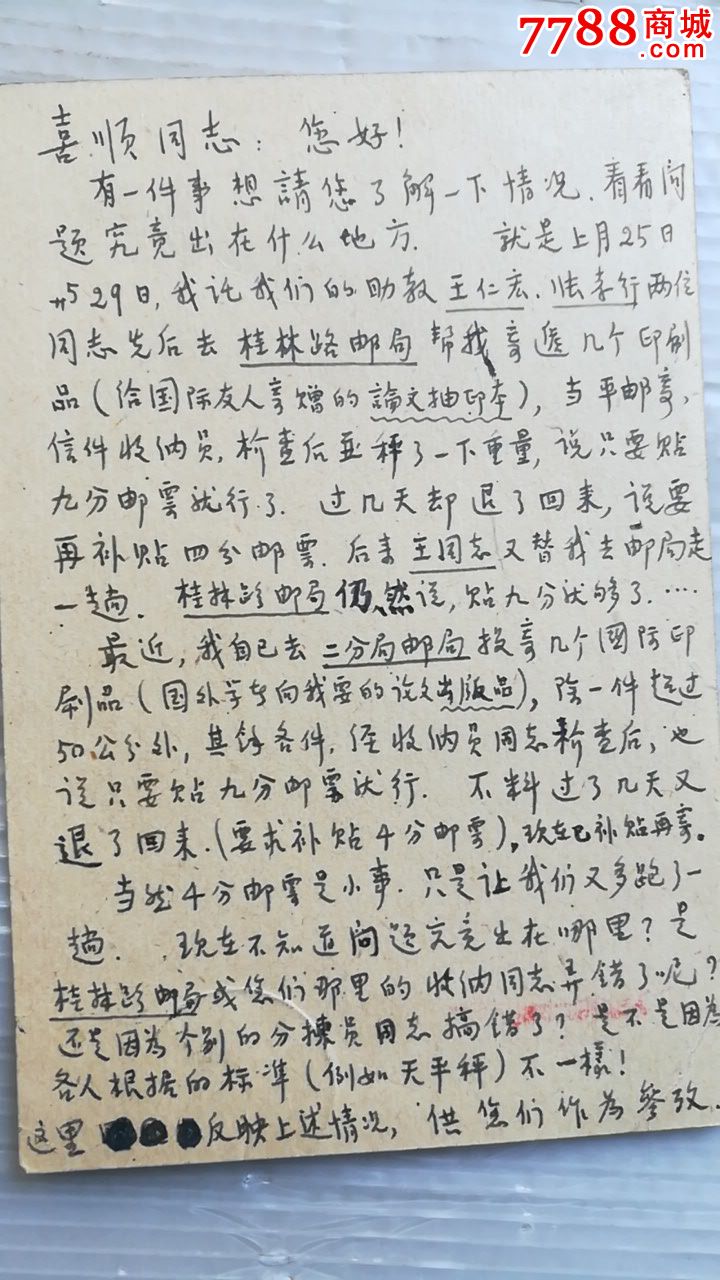 7788商城
.com
喜顺同志：您好！
有一件事想請您了解一下情况，看看问
题究竟出在什么地方． 就是上月25日
29日，我託我们的助教王仁宏、张孝行两位
同志先后去桂林路邮局帮我寄遞几个印刷
品（给国际友人寄赠的論文抽印本），当平邮寄，
信件收纳员，检查后並秤了一下重量，说只要贴
九分邮票就行了．过几天却退了回来，说要
再补贴四分邮票．后来王同志又替我去邮局走
一趟．桂林路邮局仍然说，贴九分就够了．…
最近，我自己去二分局邮局投寄几个国际印
刷品（国外学者向我要的论文出版品），除一件超过
50公分外，其馀各件，经收纳员同志检查后，也
说只要贴九分邮票就行． 不料过了几天又
退了回来．（要求补贴4分邮票），现在已补贴再寄。
当然4分邮票是小事．只是让我们又多跑了一
趟．．现在不知道问题究竟出在哪里？是
桂林路邮局或您们那里的收纳同志弄错了呢？
还是因為个别的分揀员同志搞错了？是不是因為
各人根据的标準（例如天平秤）不一樣！
这里反映上述情况，供您们作為參攷．